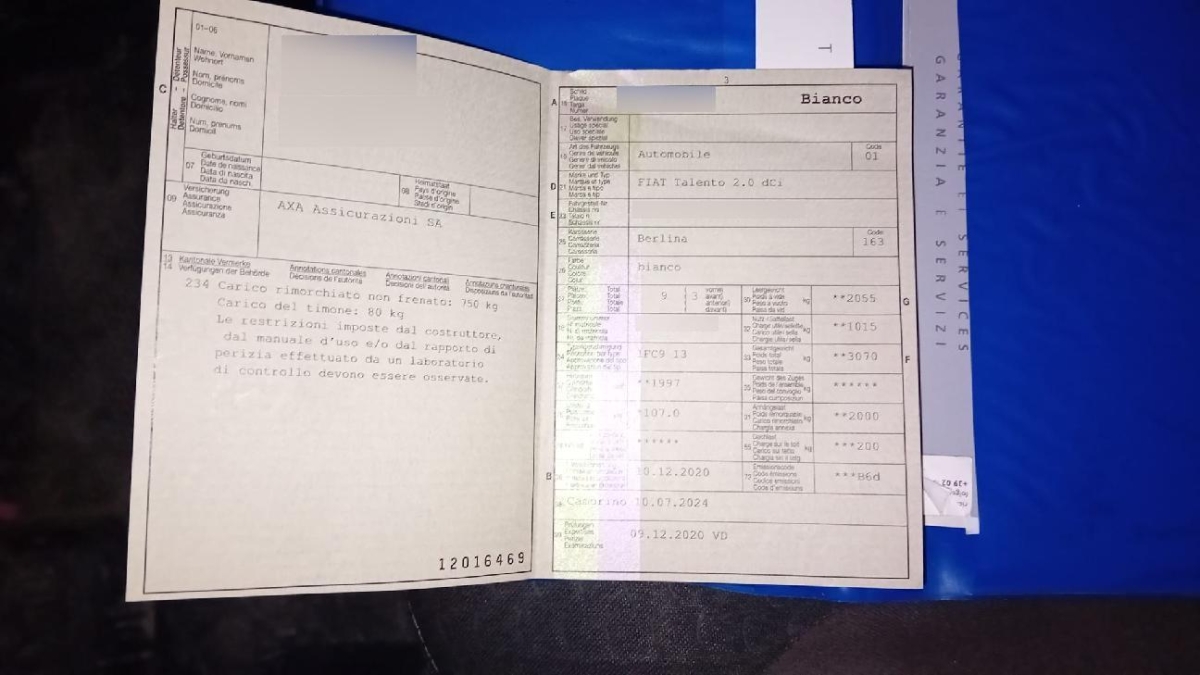 01-06
C
Halter - Detenteur
Detentore - Possessur
Name, Vornamen
Wohnort
Nom, prénoms
Domicile
Cognome, nomi
Domicilio
Num, prenums
Domicil
07 Geburtsdatum
Date de naissance
Data di nascita
Data da nasch.
08 Heimatstaat
Pays d'origine
Paese d'origine
Stadi d'origin
09 Versicherung
Assurance
Assicurazione
Assicuranza
AXA Assicurazioni SA
13 Kantonale Vermerke
14 Verfügungen der Behörde
Annotations cantonales
Décisions de l'autorité
Annotazioni cantonali
Decisioni dell'autorità
Annotaziuns chantunalas
Disposiziuns da l'autoritad
234 Carico rimorchiato non frenato: 750 kg
Carico del timone: 80 kg
Le restrizioni imposte dal costruttore,
dal manuale d'uso e/o dal rapporto di
perizia effettuato da un laboratorio
di controllo devono essere osservate.
12016469
3
A 15 Schild
Plaque
Targa
Numer
Bianco
17 Bes. Verwendung
Usage spécial
Uso speciale
Diever spezial
19 Art des Fahrzeugs
Genre de véhicule
Genere di veicolo
Gener dal vehichel
Automobile
Code
01
D 21 Marke und Typ
Marque et type
Marca e tipo
Marca e tip
FIAT Talento 2.0 dCi
E 23 Fahrgestell-Nr.
Châssis no
Telaio n.
25 Karosserie
Carrosserie
Carrozzeria
Berlina
Code
163
26 Farbe
Couleur
Colore
Colur
bianco
27 Plätze
Places
Posti
Total
Total
Totale
Total
9
( 3
vorne)
avant)
anteriori)
davant)
30 Leergewicht
Poids à vide
Peso a vuoto
Paisa da vid
kg
**2055
G
Charge utile/sellette
Carico utile/sella
kg
**1015
33 Gesamtgewicht
Poids total
Peso totale
Paisa totala
kg
**3070
F
24
1FC9 13
**1997
35 Gewicht des Zuges
Poids de l'ensemble
Peso del convoglio
Paisa cumposiziun
kg
******
*107.0
31 Anhängelast
Poids remorquable
Carico rimorchiato
Chargia annexa
kg
**2000
******
Dachlast
Charge sur le toit
Carico sul tetto
kg
***200
B 36
10.12.2020
72 Emissionscode
Code émissions
Codice emissioni
Code d'emissiuns
***B6d
Camorino 10.07.2024
Prüfungen
Expertises
Perizie
Examinaziuns
09.12.2020 VD
T
GARANZIA E SERVIZI
GARANTIE ET SERVICES